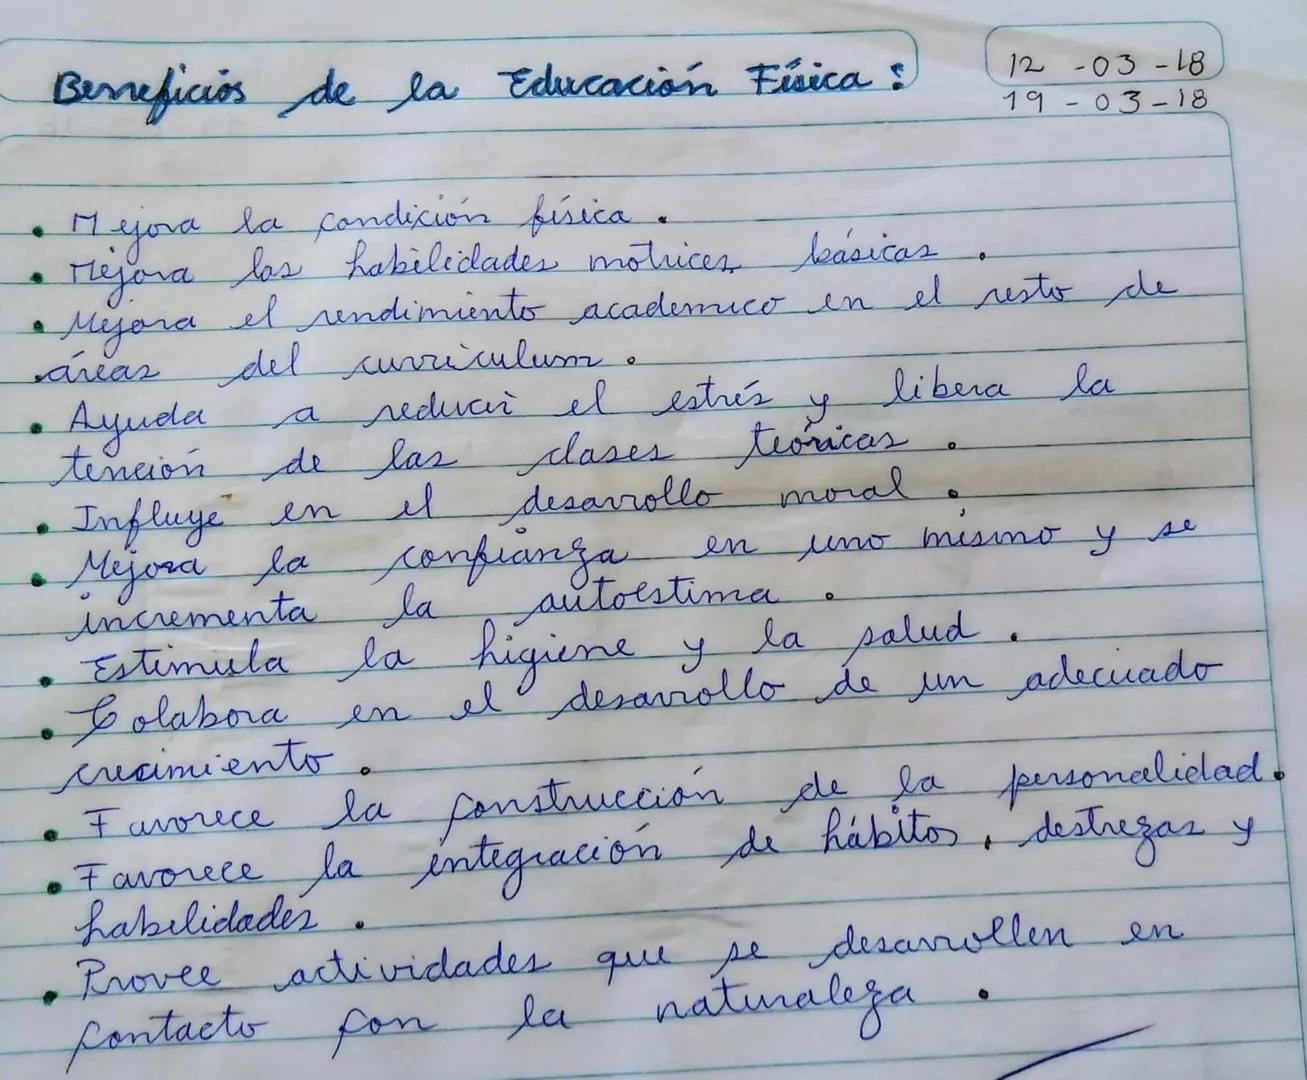 Beneficios de la Educación Física :
12 -03 -18
19 - 03 - 18
• Mejora la condición física .
• Mejora las habilidades motrices básicas .
• Mejora el rendimiento academico en el resto de
áreas del curriculum .
• Ayuda a reducir el estrés y libera la
tención de las clases teóricas .
• Influye en el desarrollo moral .
• Mejora la confianza en uno mismo y se
incrementa la autoestima .
• Estimula la higiene y la salud .
• Colabora en el desarrollo de un adecuado
crecimiento .
• Favorece la construcción de la personalidad.
• Favorece la integración de hábitos , destrezas y
habilidades .
• Provee actividades que se desarrollen en
contacto con la naturaleza .